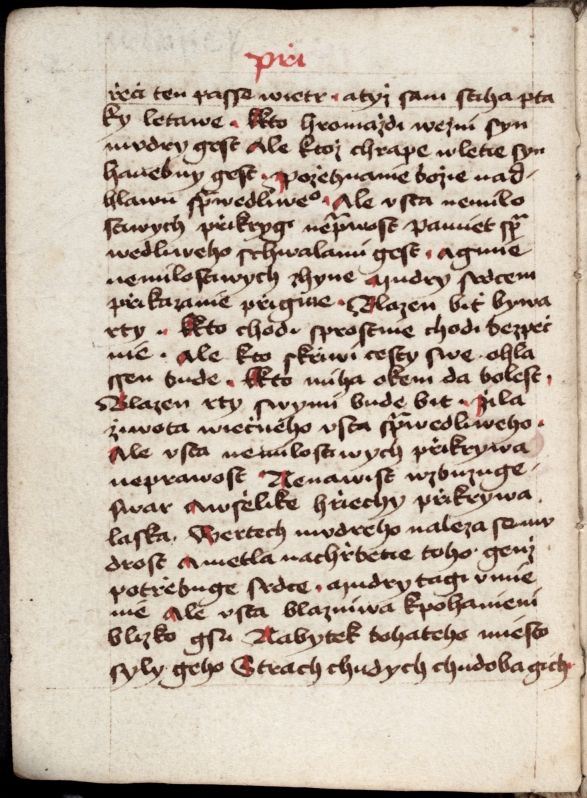 při
řeči ten passe wietr · a tyž sam stiha pta
ky letawe · Kto hromazdi we žni syn
mudry gest Ale ktož chrape w letie syn
hanebny gest · Požehnanie božie nad
hlawu sprwedliweo · Ale vsta nemilo
stiwych přikrygi neprwost Pamiet spr
wedliweho s chwalami gest · a gmie
nemilostiwych zhyne Mudry srdcem
přikazanie přigme · Blazen bit bywa
rty · Kto chodi sprostnie chodi bezpeč
nie · Ale kto skřiwi cesty swe ohla
ssen bude · Kto miha okem da bolest ·
Blazen rty swymi bude bit · Žila
žiwota wiečneho vsta sprwedliweho ·
Ale vsta nemilostiwych přikrywa
neprawost Nenawist wzbuzuge
swar A wšelike hřiechy přikrywa
laska · W rtech mudreho naleza se mu
drost A metla na chřbetie toho genž
potřebuge srdce · Mudry tagi vmie
nie Ale vsta blazniwa k pohanieni
blizko gsu Nabytek bohateho miesto
syly geho Strach chudych chudoba gich